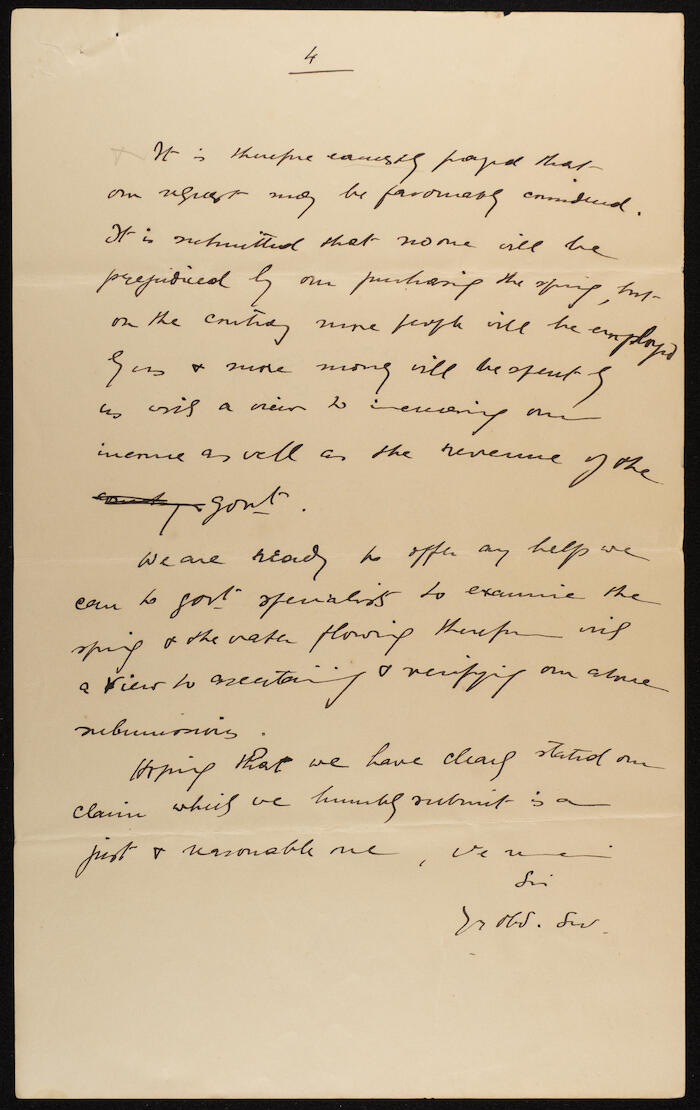 4
It is therefore earnestly prayed that
our request may be favourably considered.
It is submitted that no one will be
prejudiced by our purchasing the spring, but
on the contrary more people will be employed
by us & more money will be spent by
us with a view to increasing our
income as well as the revenue of the
country govt.
We are ready to offer any help we
can to govt specialists to examine the
spring & the water flowing therefrom with
a view to ascertaining & verifying our above
submissions.
Hoping that we have clearly stated our
claim which we humbly submit is a
just & reasonable one, we remain
Sir
Yr obd. Srv.